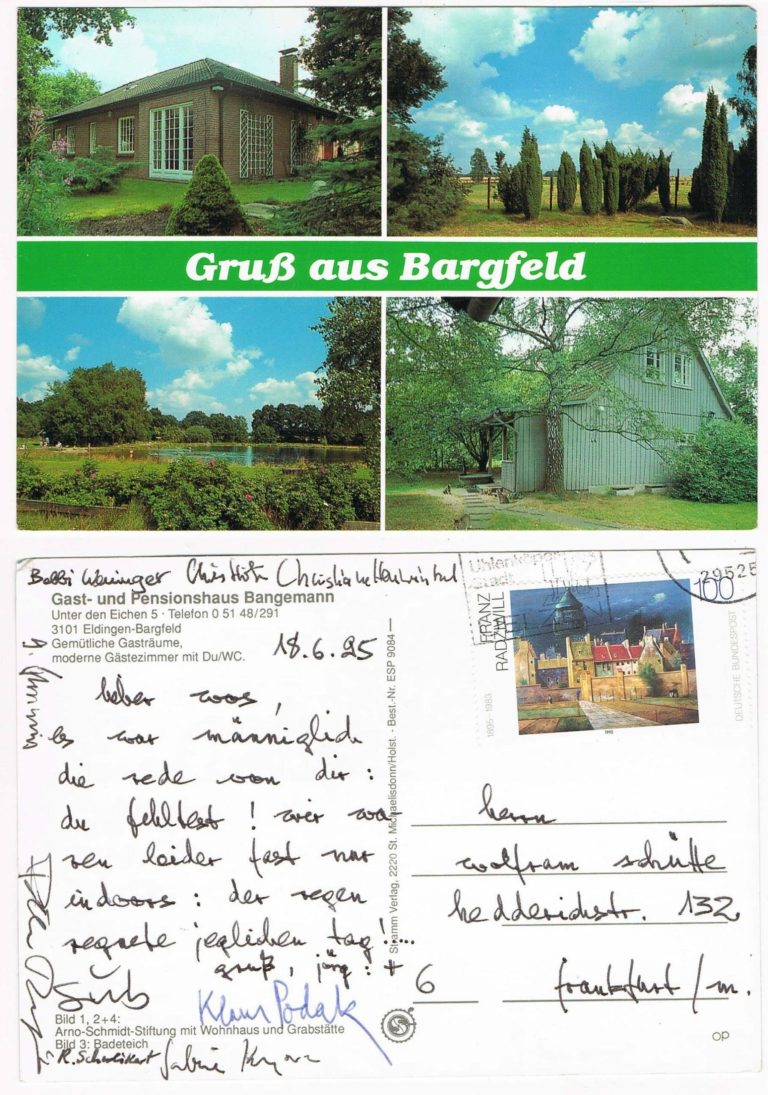 Gruß aus Bargfeld
Bobbi Christiane
Gast- und Pensionshaus Bangemann
Unter den Eichen 5 · Telefon 0 51 48/291
3101 Eldingen-Bargfeld
Gemütliche Gasträume,
moderne Gästezimmer mit Du/WC.
18.6.95
lieber woos,
es war männiglich
die rede von dir:
du fehltest! wir wa-
ren leider fast nur
indoors: der regen
regnete jeglichen tag!....
gruß, jörg: +
Klaus Podak
Bild 1, 2+4:
Arno-Schmidt-Stiftung mit Wohnhaus und Grabstätte
Bild 3: Badeteich
R. Sabine
Stramm Verlag, 2220 St. Michaelisdonn/Holst. - Best.-Nr. ESP 9084
FRANZ
RADZIWILL
1895-1983
100
DEUTSCHE BUNDESPOST
29525
herrn
wolfram schütte
hedderichstr. 132
6 frankfurt/m.